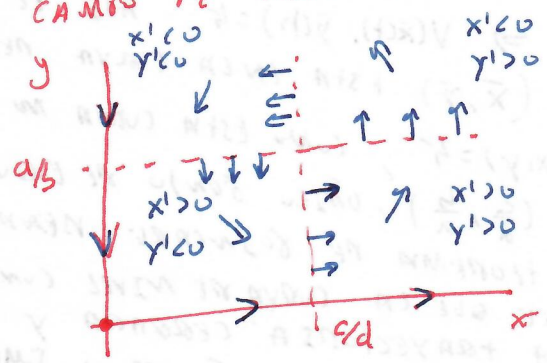 CAMPO
x'<0
y'<0
x'<0
y'>0
y
a/b
x'>0
y'<0
x'>0
y'>0
c/d
x